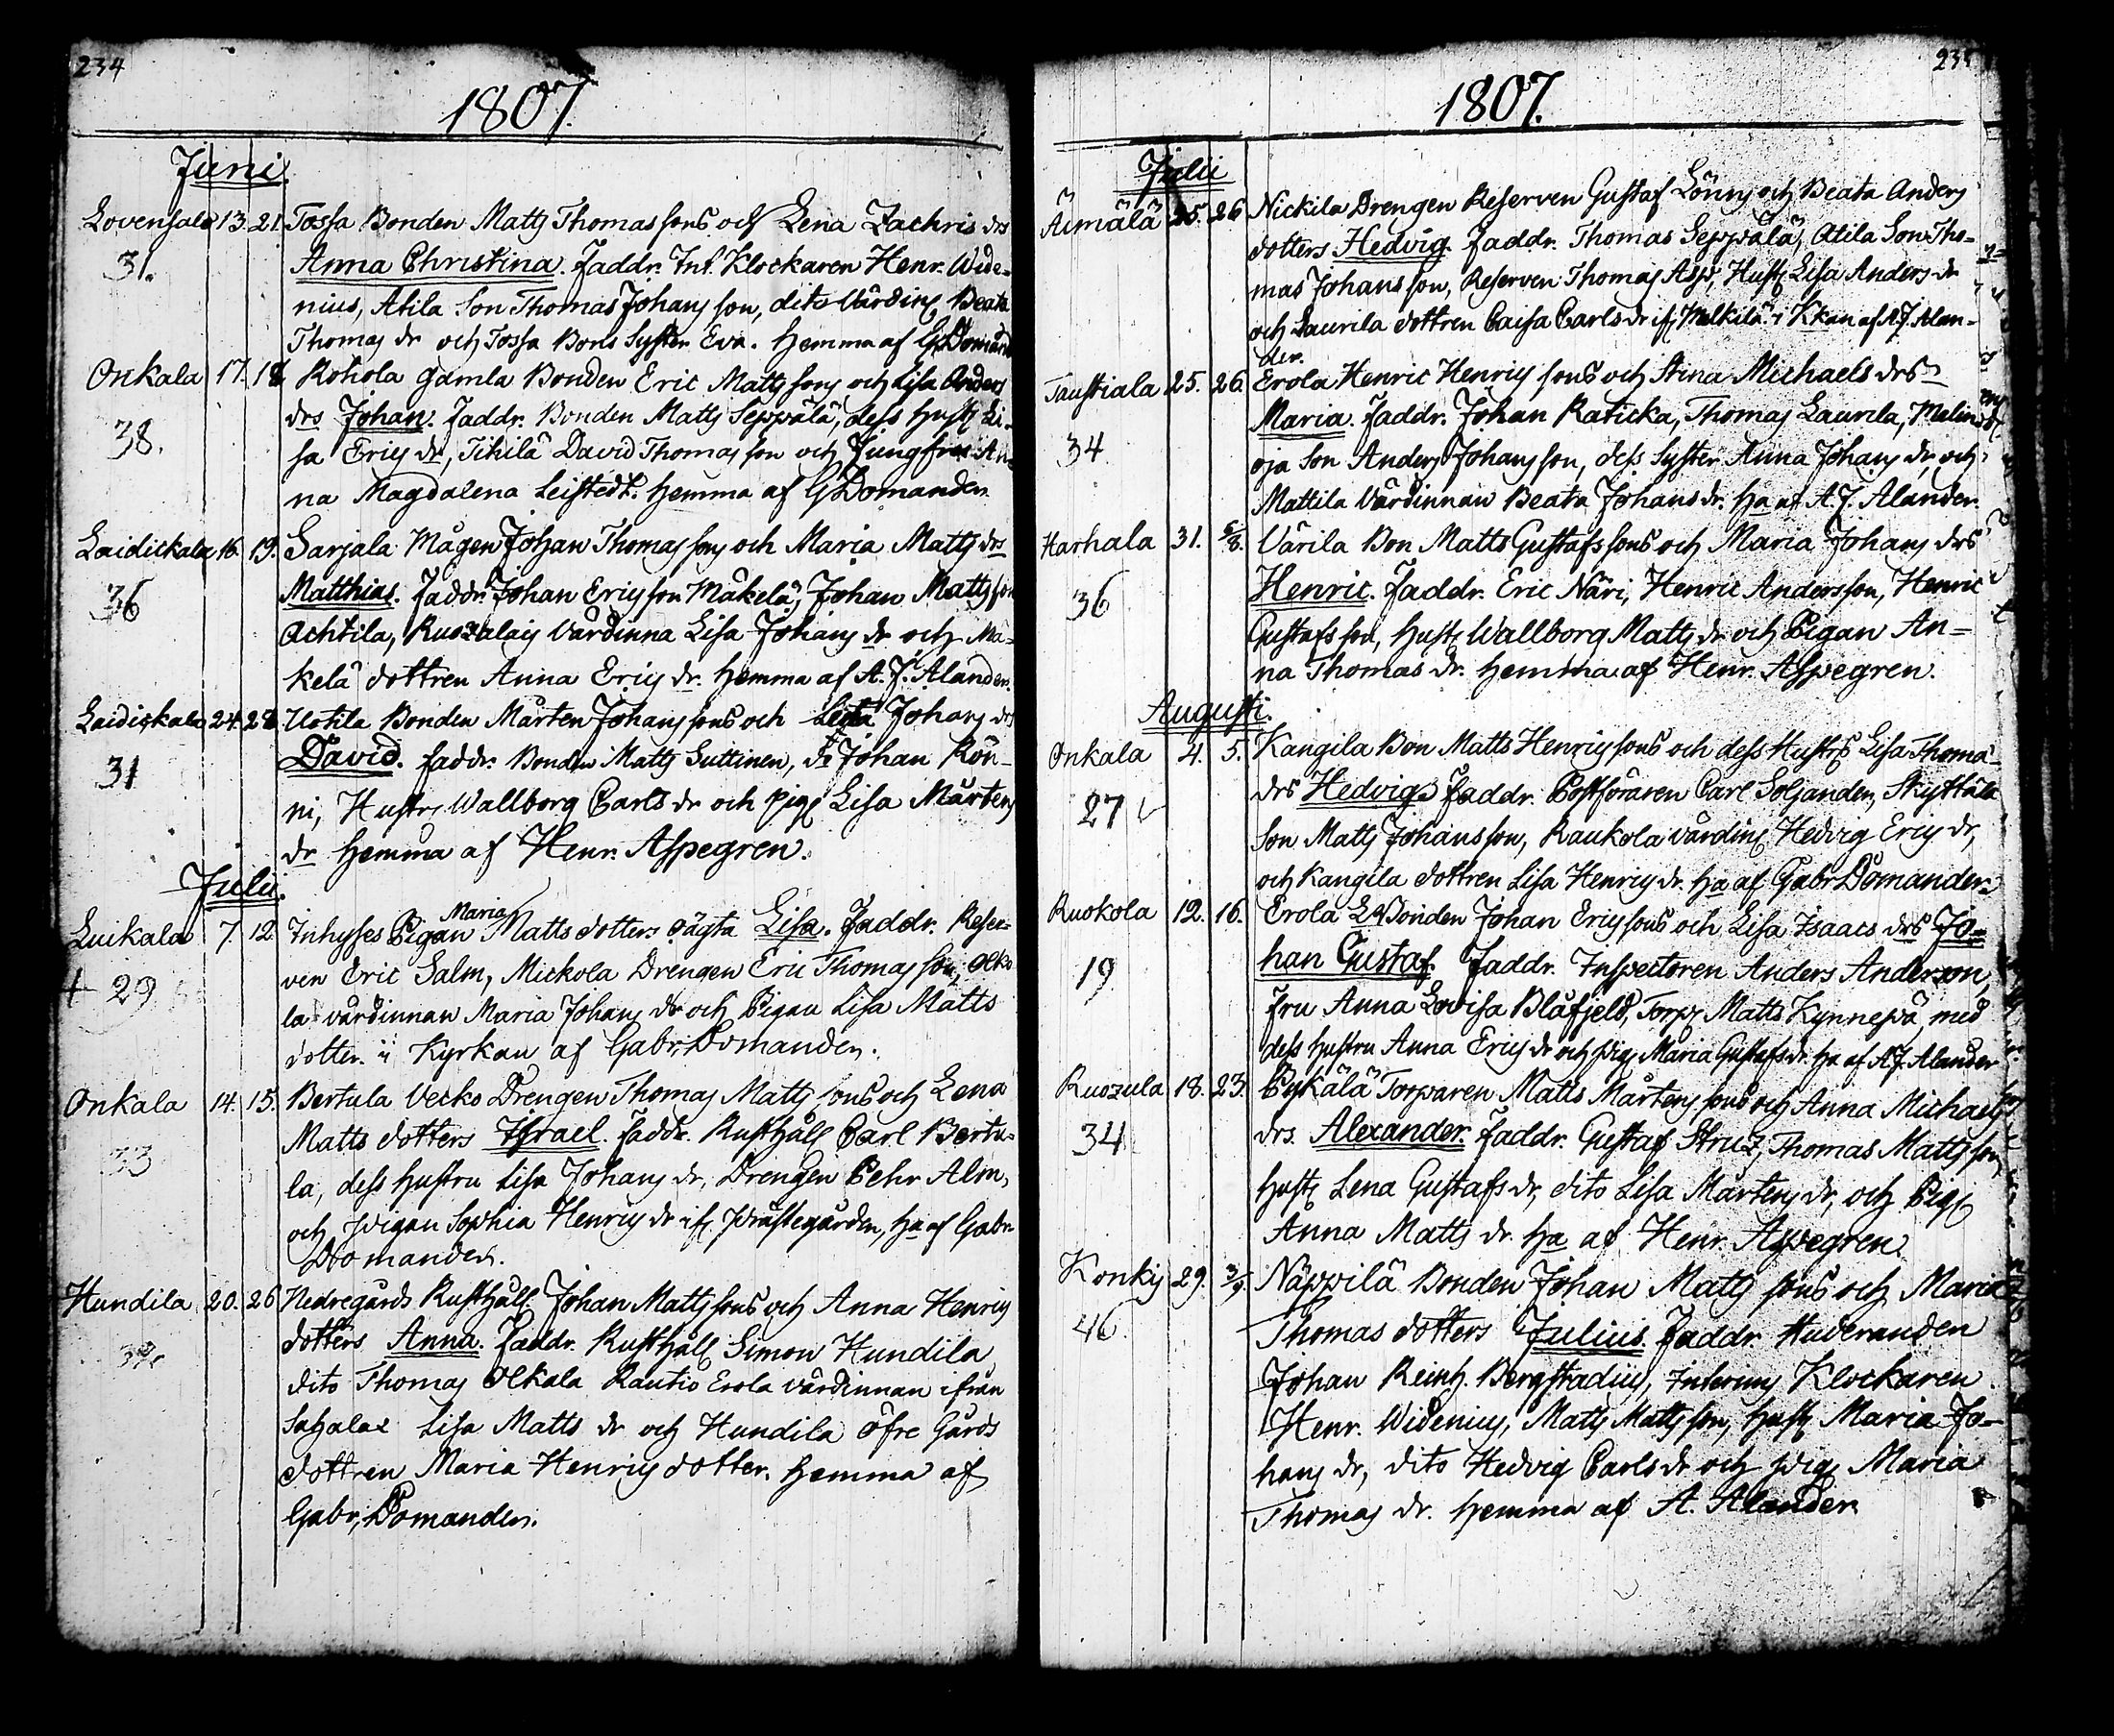 234
1807.
Juni.
Lovensala 13. 21. Tossa Bonden Matts Thomas sons och Lena Zachris drs
31. Anna Christina. Faddr. Int. Klockaren Henr. Wide-
nius, Atila Son Thomas Johans son, dito Värdin Beata
Thomas dr och Tossa Bons Syster Eva. Hemma af G. Domand
Onkala 17. 18 Rohola gamla Bonden Eric Matts sons och Lisa Anders
drs Johan. Faddr. Bonden Matts Seppälä, dess Hustr Li-
38. sa Erics dr, Tikilä David Thomas son och Jungfru An-
na Magdalena Leistedt. Hemma af G Domander
Laidickala 16. 19. Sarjala Mågen Johan Thomas sons och Maria Matts drs
36 Matthias. Faddr. Johan Erics son Mäkelä, Johan Matts son
Achtila, Ruozalais Värdinna Lisa Johans dr och Mä-
kelä dottren Anna Erics dr. Hemma af A. J. Alander.
Laidickala 24. 28 Uotila Bonden Mårten Johans sons och Johans drs
31 David. Faddr. Bonden Matts Suttinen, Johan Rön-
ni, Hustr Wallborg Carls dr och pig Lisa Mårtens
dr Hemma af Henr. Aspegren.
Julii.
Luikala 7. 12. Inhyses Pigan Maria Matts dotters oägta Lisa. Faddr. Reser-
29 ven Eric Salm, Mickola Drengen Eric Thomas son, Olko-
la värdinnan Maria Johans dr och Pigan Lisa Matts
dotter. i Kyrkan af Gabr. Domander.
Onkala 14. 15. Bertula Vecko Drengen Thomas Matts sons och Lena
33 Matts dotters Israel. Faddr. Rusthåll Carl Bertu-
la, dess hustru Lisa Johans dr, Drengen Pehr Alm,
och pigan Sophia Henrics dr if Prästegården, Ha af Gabr.
Domander.
Hundila 20. 26 Nedregårds Rusthåll Johan Matts sons och Anna Henrics
dotters Anna. Faddr. Rusthåll Simon Hundila
dito Thomas Olkala Rautio Erola värdinnan ifrån
Sahalax Lisa Matts dr och Hundila öfre Gårds
dottren Maria Henrics dotter. Hemma af
Gabr. Domander.
1807.
Julii
Äimälä 25. 26 Nickila Drengen Reserven Gustaf Lönn och Beata Anders
dotters Hedvig. Faddr. Thomas Seppälä, Atila Son Tho-
mas Johans son, Reserven Thomas Asp, Hustr Lisa Anders dr
och Laurila dottren Caisa Carls dr if Melkilä i Kkan af A.J. Alan-
der.
Taustiala 25. 26. Erola Henric Henrics sons och Stina Michaels drs
34 Maria. Faddr. Johan Raticka, Thomas Laurila, Malin-
oja Son Anders Johans son, dess Syster Anna Johans dr och
Mattila Värdinnan Beata Johans dr. Ha af A. J. Alander.
Harhala 31. 5/8. Värila Bon Matts Gustafs sons och Maria Johans drs
36 Henric. Faddr. Eric Näri, Henric Andersson, Henric
Gustafs son, Hustr Wallborg Matts dr och Pigan An-
na Thomas dr. Hemma af Henr. Aspegren.
Augusti.
Onkala 4. 5. Kangila Bon Matts Henrics sons och dess Hustrs Lisa Thoma-
27 drs Hedvig. Faddr. Postföraren Carl Soljander, Skyttälä
Son Matts Johansson, Raukola värdin Hedvig Erics dr,
och Kangila dottren Lisa Henrics dr. Ha af Gabr Domander
Ruokola 12. 16. Erola Bonden Johan Erics sons och Lisa Isaacs drs Jo-
19 han Gustaf. Faddr. Inspectoren Anders Anderzon,
fru Anna Lovisa Blåfjeld, Torp Matts Kynnepä, med
dess hustru Anna Erics dr och pig Maria Gustafs dr. Ha af A.J. Alander
Ruozula 18. 23. Pykälä Torparen Matts Mårtens sons och Anna Michaels
34 drs. Alexander. Faddr. Gustaf Struz, Thomas Matts son,
Hustr Lena Gustafs dr, dito Lisa Mårtens dr, och Pig
Anna Matts dr. Ha af Henr. Aspegren.
Konkis 29. 3/9. Näppilä Bonden Johan Matts sons och Maria
46. Thomas dotters Julius. Faddr. Studeranden
Johan Reinh. Bergstadius, Interims Klockaren
Henr. Widenius, Matts Matts son, Hustr Maria Jo-
hans dr, dito Hedvig Carls dr och pig Maria
Thomas dr. Hemma af A. Alander.